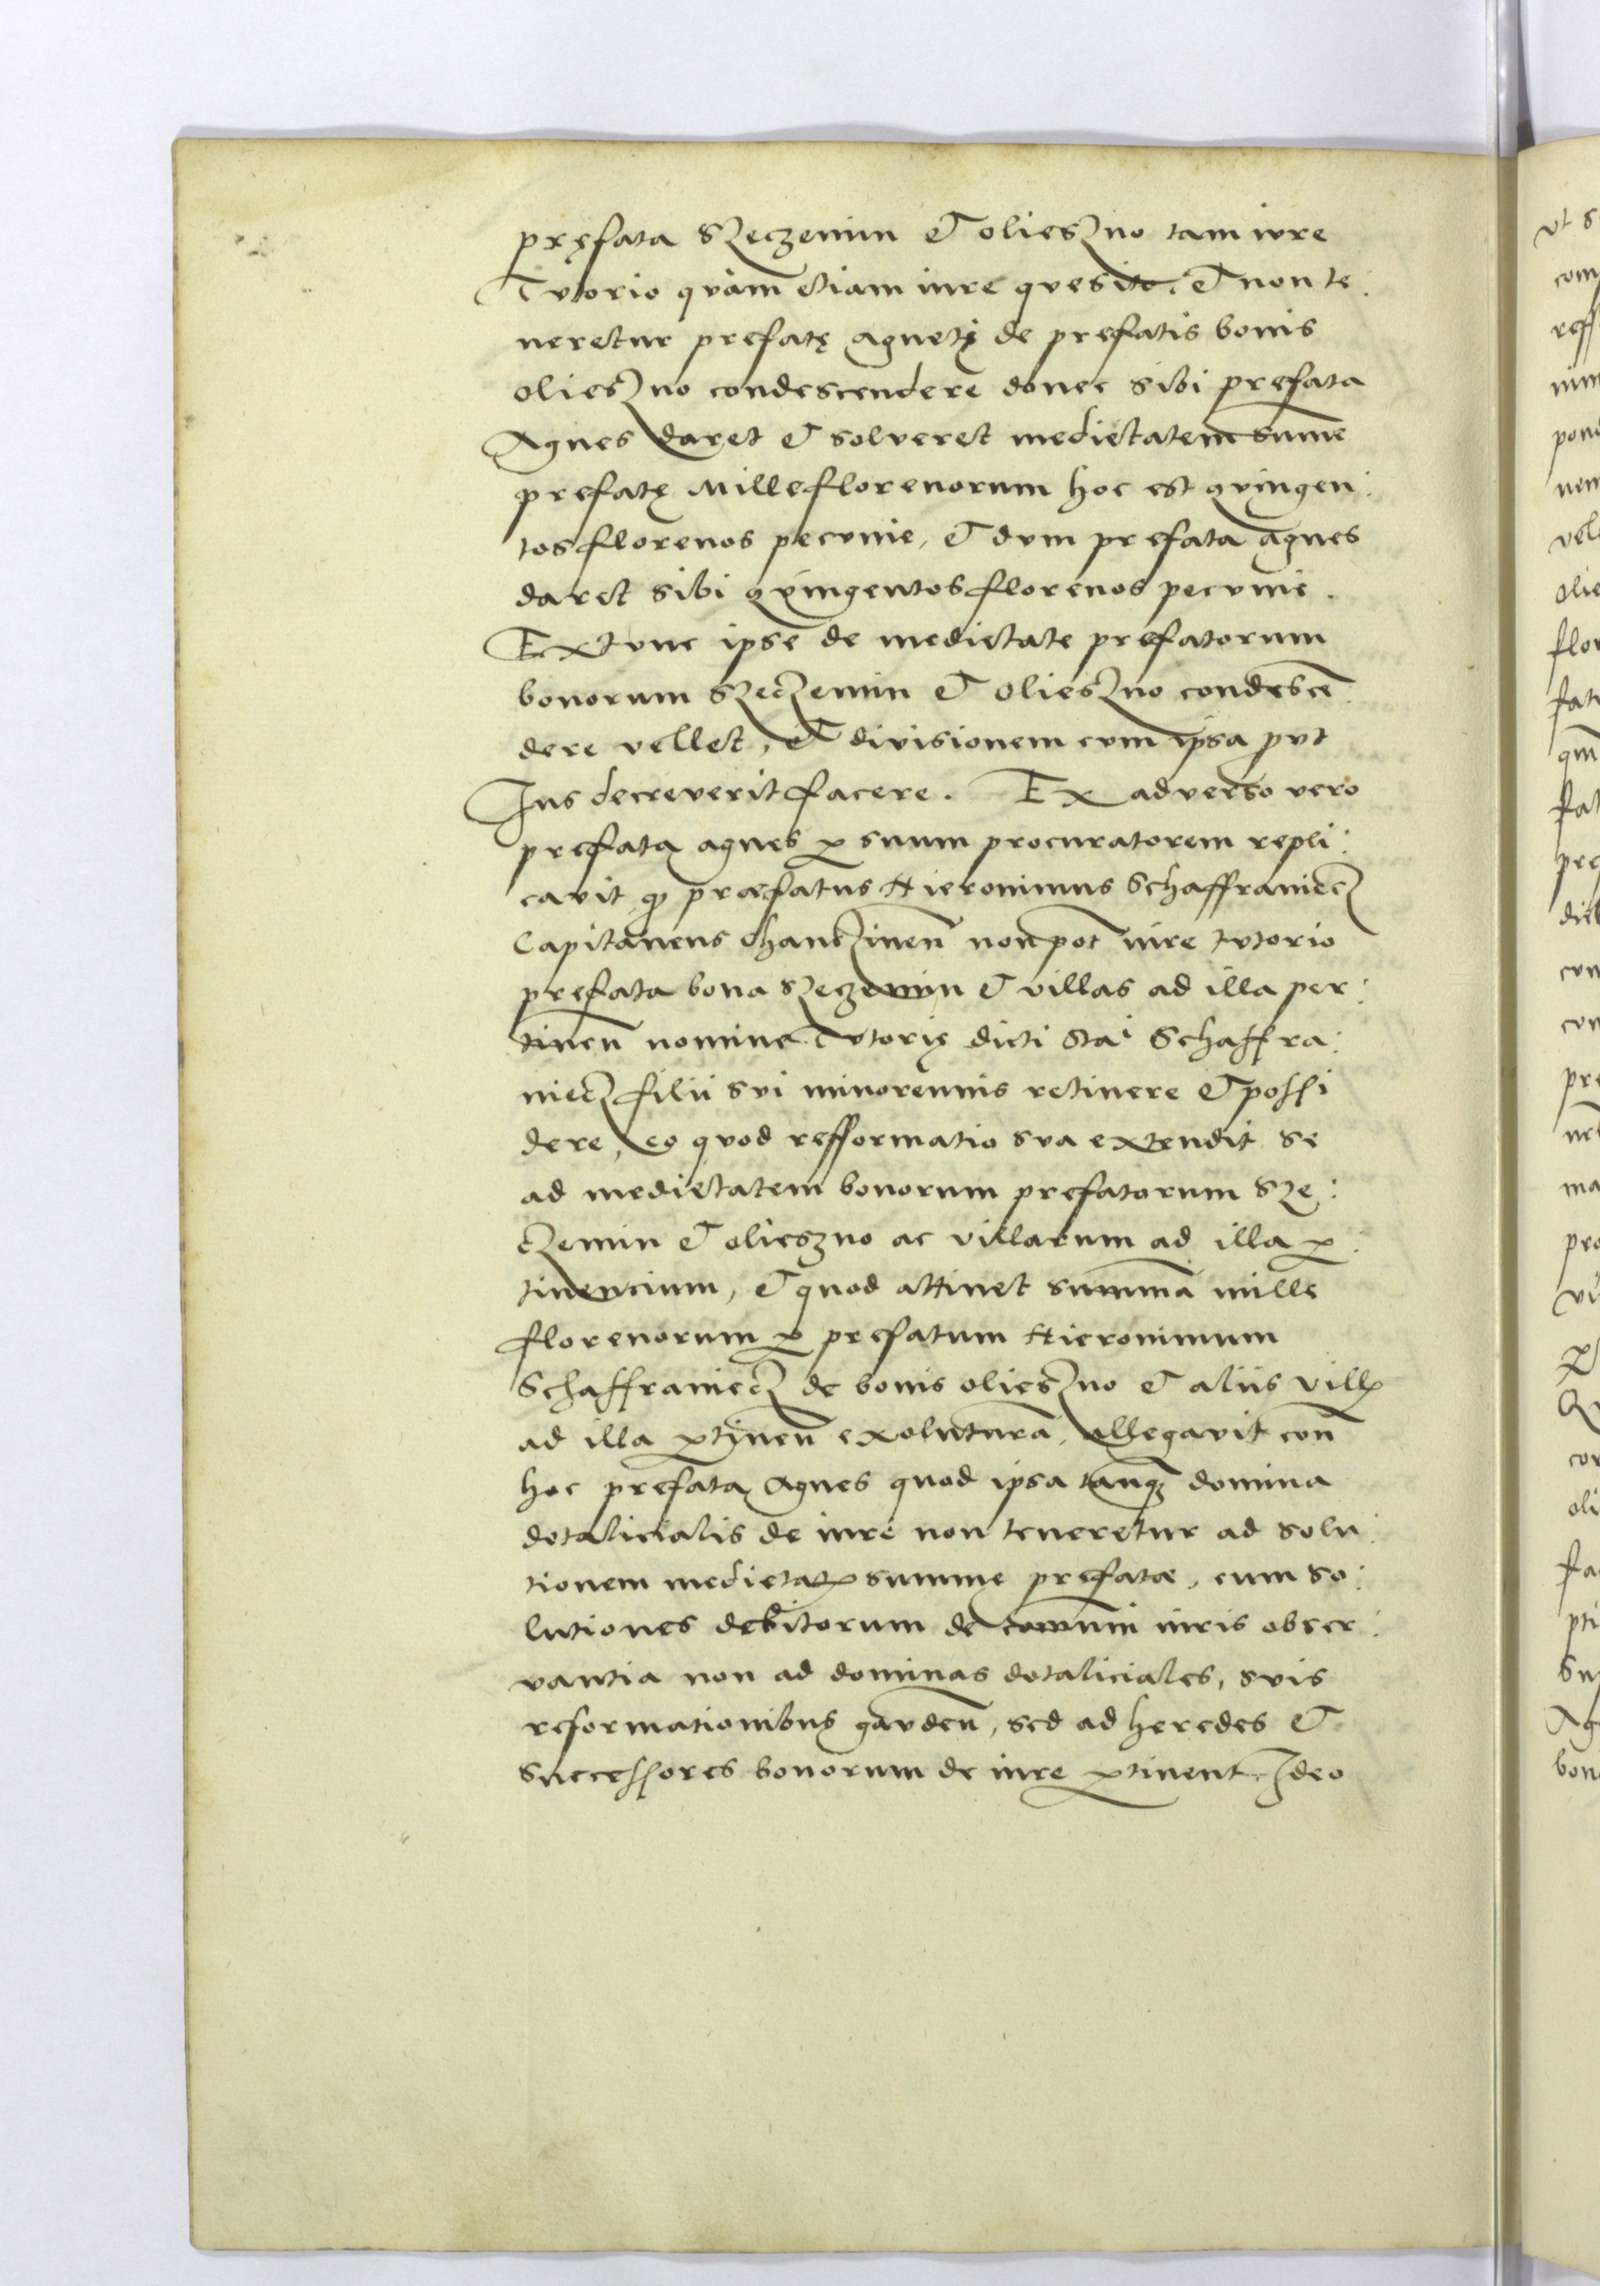 pręfata Szeczemin et olieszno tam iure
Tutorio quàm etiam iure quesito. et non te:
neretur prefatę agnetį de prefatis bonis
oliesZno condescendere donec sibi prefata
Agnes daret et solveret medietatem sum̄e
prefatę Mille florenorum hoc est qvingen:
tos florenos pecunie, et dum prefata agnes
daret sibi qvingentos florenos pecunie.
Extunc ipse de medietate prefatorum
bonorum Szeczemin et oliesZno condescē
dere vellet, et divisionem cum ipsa ꝓut
Jus decreverit facere. Ex adverso vero
prefata agnes ꝑ suum procuratorem repli:
cavit ꝙ præfatus Hieronimus Schaffraniecz
Capitaneus Chanczinen̄ non pot̄ iure tutorio
prefata bona Szeczemin et villas ad illa per:
tinen̄ nomine Tutorię dicti Stai Schaffra:
niecz filii sui minorennis retinere et possi
dere, eo quod refformatio sua extendit se
ad medietatem bonorum prefatorum Sze:
czemin et olieszno ac villarum ad illa ꝑ:
tinencium, et quod attinet summā mille
florenorum ꝑ prefatum Hieronimum
Schaffraniecz de bonis oliesZno et aliis villꝭ
ad illa ꝑtinen̄ exoluturā, allegavit con̄
hoc prefata Agnes quod ipsa tanqꝫ domina
dotalicialis de iure non teneretur ad solu:
tionem medietatꝭ summę prefatæ, cum so:
lutiones debitorum de com̄uni iuris obser:
vantia non ad dominas dotaliciales, suis
reformationibus gauden̄, sed ad heredes et
successores bonorum de iure ꝑtinent. Ideo